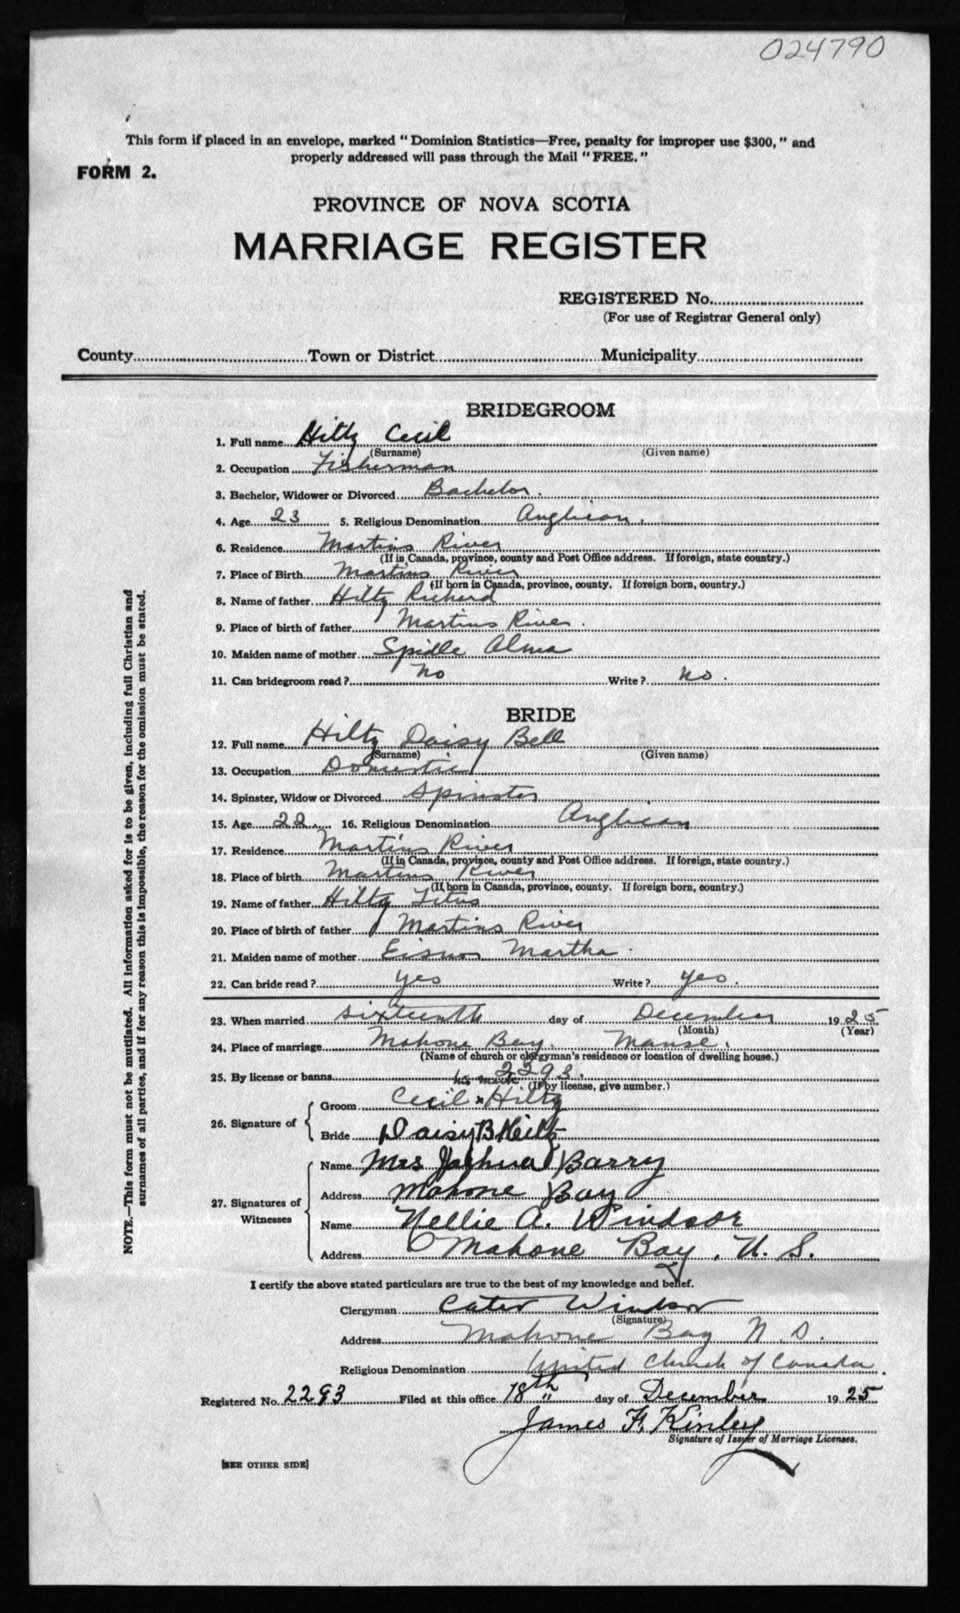 024790
This form if placed in an envelope, marked "Dominion Statistics—Free, penalty for improper use $300," and
properly addressed will pass through the Mail "FREE."
FORM 2.
PROVINCE OF NOVA SCOTIA
MARRIAGE REGISTER
REGISTERED No.
(For use of Registrar General only)
County Town or District Municipality
BRIDEGROOM
1. Full name Hiltz Cecil
(Surname) (Given name)
2. Occupation Fisherman
3. Bachelor, Widower or Divorced Bachelor.
4. Age 23 5. Religious Denomination Anglican.
6. Residence Martins River
(If in Canada, province, county and Post Office address. If foreign, state country.)
7. Place of Birth Martins River
(If born in Canada, province, county. If foreign born, country.)
8. Name of father Hiltz Richard
9. Place of birth of father Martins River.
10. Maiden name of mother Spidle Alma
11. Can bridegroom read? No Write? No.
BRIDE
12. Full name Hiltz Daisy Bell
(Surname) (Given name)
13. Occupation Domestic
14. Spinster, Widow or Divorced Spinster
15. Age 22 16. Religious Denomination Anglican
17. Residence Martins River
(If in Canada, province, county and Post Office address. If foreign, state country.)
18. Place of birth Martins River
(If born in Canada, province, county. If foreign born, country.)
19. Name of father Hiltz Titus
20. Place of birth of father Martins River
21. Maiden name of mother Eisnor Martha.
22. Can bride read? Yes Write? Yes.
23. When married Sixteenth day of December 1925
(Month) (Year)
24. Place of marriage Mahone Bay. Manse.
(Name of church or clergyman's residence or location of dwelling house.)
25. By license or banns 2293.
(If by license, give number.)
his mark
26. Signature of { Groom Cecil x Hiltz
Bride Daisy B Hiltz
27. Signatures of Witnesses { Name Mrs Joshua Barry
Address Mahone Bay
Name Nellie A. Windsor
Address Mahone Bay, N. S.
I certify the above stated particulars are true to the best of my knowledge and belief.
Clergyman Cater Windsor
(Signature)
Address Mahone Bay N. S.
Religious Denomination United Church of Canada.
Registered No. 2293 Filed at this office 18th day of December 1925
James F. Kinley
Signature of Issuer of Marriage Licenses.
[SEE OTHER SIDE]
NOTE.—This form must not be mutilated. All information asked for is to be given, including full Christian and
surnames of all parties, and if for any reason this is impossible, the reason for the omission must be stated.